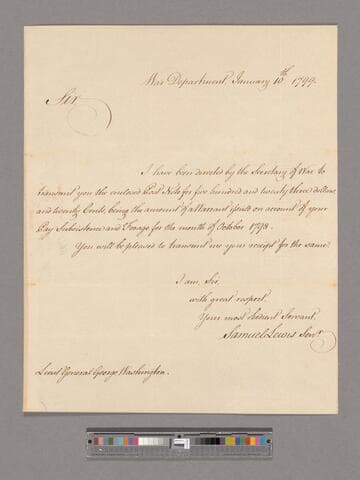 War Department January 10th 1799.
Sir
I have been directed by the Secretary of War to
transmit you the enclosed Post Note for five hundred and twenty three dollars
and twenty Cents, being the amount of a Warrant issued on account of your
Pay Subsistence and Forage for the month of October 1798.
You will be pleased to transmit me your receipt for the same.
I am, Sir,
with great respect,
Your most obedient Servant.
Samuel Lewis Senr
Lieut General George Washington.